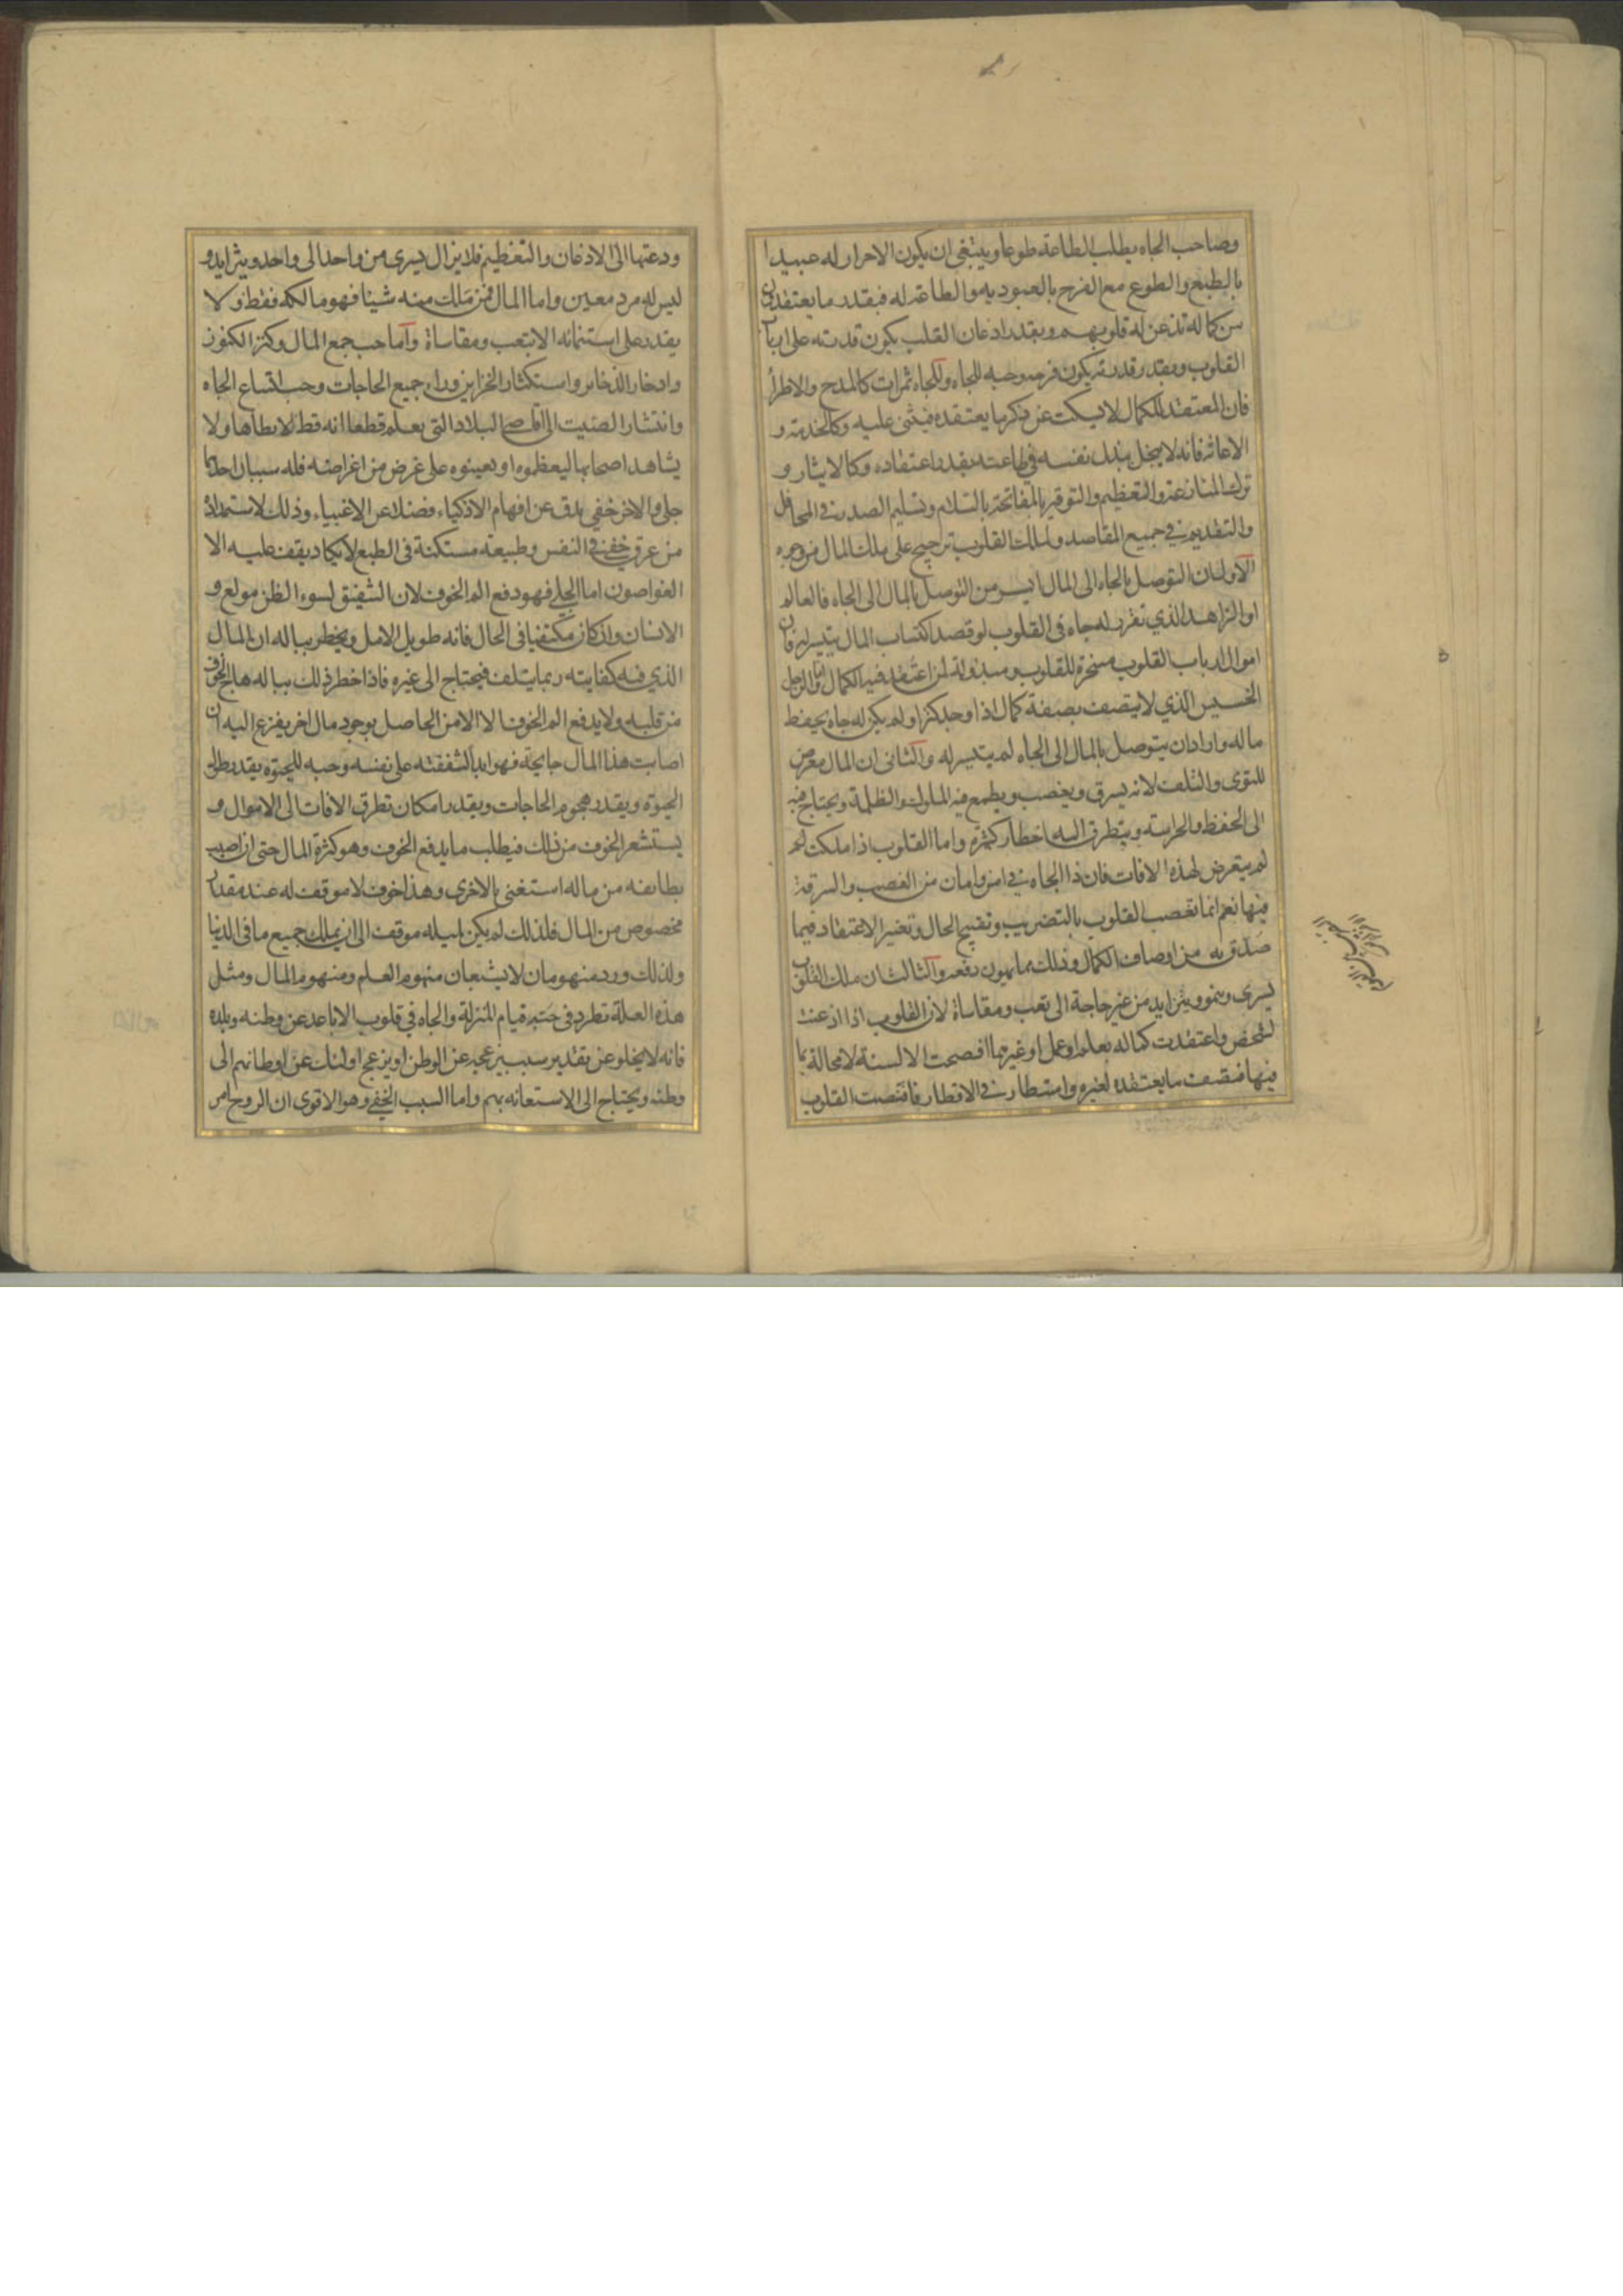 وصاحب الجاه يطلب الطاعة طوعا ويبتغى ان يكون الاحرار له عبيدا
بالطبع والطوع مع الفرح بالعبوديه والطاعة له فبقدر ما يعتقدون
من كماله تذعن له قلوبهم وبقدر اذعان القلب يكون قدرته على ارباب
القلوب وبقدر قدرته يكون فرحه وحبه للجاه وللجاه ثمرات كالمدح والاطرا
فان المعتقد للكمال لا يسكت عن ذكر ما يعتقده فيثنى عليه وكالخدمة و
الاعانة فانه لا يبخل ببذل نفسه في طاعته بقدر اعتقاده وكالايثار و
ترك المنازعة والتعظيم والتوقير بالمفاتحة بالسلام وتسليم الصدر في المحافل
والتقديم في جميع المقاصد ولملك القلوب ترجيح على ملك المال من وجوه
الاول ان التوصل بالجاه الى المال ايسر من التوصل بالمال الى الجاه فالعالم
او الزاهد الذي تقرر له جاه فى القلوب لو قصد اكتساب المال يتيسر له فان
اموال ارباب القلوب مسخرة للقلوب ومبذولة لمن اعتقد فيه الكمال واما الرجل
الخسيس الذي لا يتصف بصفة كمال اذا وجد كنزا ولم يكن له جاه يحفظ
ماله واراد ان يتوصل بالمال الى الجاه لم يتيسر له والثانى ان المال معرض
للتوى والتلف لانه يسرق ويغصب ويطمع فيه الملوك والظلمة ويحتاج فيه
الى الحفظ والحراسة ويتطرق اليه اخطار كثيرة واما القلوب اذا ملكت
لم يتعرض لهذه الافات فان ذا الجاه في امن وامان من الغصب والسرقة
فيها نعم انما تغصب القلوب بالتضريب وتقبيح الحال وتغير الاعتقاد فيما
صدق به من اوصاف الكمال وذلك مما يهون دفعه والثالث ان ملك القلوب
يسرى وينمو ويتزايد من غير حاجة الى تعب ومقاساة لان القلوب اذا اذعنت
لشخص واعتقدت كماله بعلم او عمل او غيرهما افصحت الالسنة لا محالة بما
فيها فيصف ما يعتقده لغيره واستطار في الاقطار فاقتنصت القلوب
ودعتها الى الاذعان والتعظيم فلا يزال يسرى من واحد الى واحد ويتزايد و
ليس له مرد معين واما المال فمن ملك منه شيئا فهو مالكه فقط ولا
يقدر على استنمائه الا بتعب ومقاساة واما حب جمع المال وكنز الكنوز
وادخار الذخاير واستكثار الخزاين وراء جميع الحاجات وحب اتساع الجاه
وانتشار الصيت الى اقاصي البلاد التى يعلم قطعا انه قط لا يطأها ولا
يشاهد اصحابها ليعظموه او يعينوه على غرض من اغراضه فله سببان احدهما
جلى والاخر خفي يدق عن افهام الاذكياء فضلا عن الاغبياء وذلك لاستمداده
من عرق خفي في النفس وطبيعة مستكنة فى الطبع لا يكاد يقف عليه الا
الغواصون اما الجلى فهو دفع الم الخوف لان الشفيق لسوء الظن مولع و
الانسان وان كان مكتفيا في الحال فانه طويل الامل ويخطر بباله ان المال
الذي فيه كفايته ربما يتلف فيحتاج الى غيره فاذا خطر ذلك بباله هاج الخوف
من قلبه ولا يدفع الم الخوف الا الامن الحاصل بوجود مال اخر يفزع اليه ان
اصابت هذا المال جايحة فهو ابدا لشفقته على نفسه وحبه للحيوة يقدر طول
الحيوة ويقدر هجوم الحاجات ويقدر امكان تطرق الافات الى الاموال و
يستشعر الخوف من ذلك فيطلب ما يدفع الخوف وهو كثرة المال حتى ان اصيب
بطايفه من ماله استغنى بالاخرى وهذا خوف لا موقف له عند مقدار
مخصوص من المال فلذلك لم يكن لميله موقف الى ان يملك جميع ما فى الدنيا
ولذلك ورد منهومان لا يشبعان منهوم العلم ومنهوم المال ومثل
هذه العلة تطرد فى حبه قيام المنزلة والجاه في قلوب الاباعد عن وطنه وبلده
فانه لا يخلو عن تقدير سبب يزعجه عن الوطن او يزعج اولئك عن اوطانهم الى
وطنه ويحتاج الى الاستعانه بهم واما السبب الخفي وهو الاقوى ان الروح امر